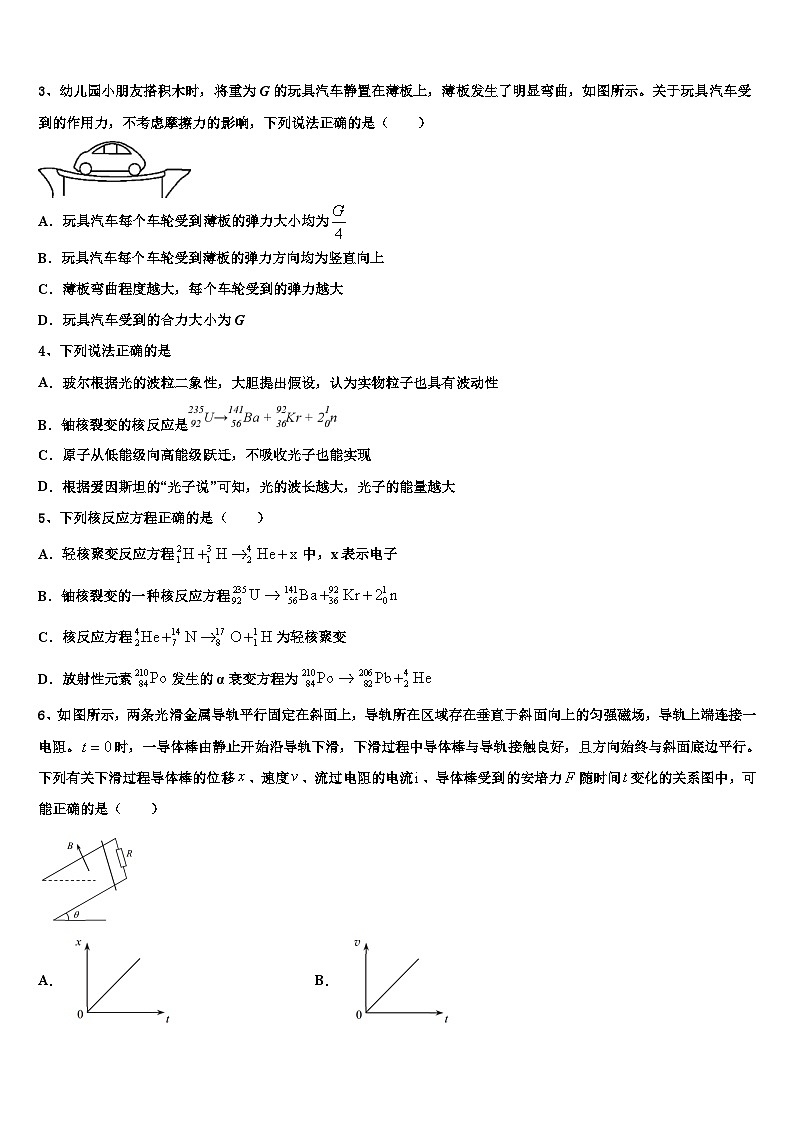 3、幼儿园小朋友搭积木时，将重为 G 的玩具汽车静置在薄板上，薄板发生了明显弯曲，如图所示。关于玩具汽车受
到的作用力，不考虑摩擦力的影响，下列说法正确的是（　　）
A．玩具汽车每个车轮受到薄板的弹力大小均为 G/4
B．玩具汽车每个车轮受到薄板的弹力方向均为竖直向上
C．薄板弯曲程度越大，每个车轮受到的弹力越大
D．玩具汽车受到的合力大小为 G
4、下列说法正确的是
A．玻尔根据光的波粒二象性，大胆提出假设，认为实物粒子也具有波动性
B．铀核裂变的核反应是 ²³⁵₉₂U→¹⁴¹₅₆Ba + ⁹²₃₆Kr + 2¹₀n
C．原子从低能级向高能级跃迁，不吸收光子也能实现
D．根据爱因斯坦的“光子说”可知，光的波长越大，光子的能量越大
5、下列核反应方程正确的是（　　）
A．轻核聚变反应方程 ²₁H+³₁H→⁴₂He+x 中，x 表示电子
B．铀核裂变的一种核反应方程 ²³⁵₉₂U→¹⁴¹₅₆Ba+⁹²₃₆Kr+2¹₀n
C．核反应方程 ⁴₂He+¹⁴₇N→¹⁷₈O+¹₁H 为轻核聚变
D．放射性元素 ²¹⁰₈₄Po 发生的 α 衰变方程为 ²¹⁰₈₄Po→²⁰⁶₈₂Pb+⁴₂He
6、如图所示，两条光滑金属导轨平行固定在斜面上，导轨所在区域存在垂直于斜面向上的匀强磁场，导轨上端连接一
电阻。t＝0 时，一导体棒由静止开始沿导轨下滑，下滑过程中导体棒与导轨接触良好，且方向始终与斜面底边平行。
下列有关下滑过程导体棒的位移 x 、速度 v 、流过电阻的电流 i 、导体棒受到的安培力 F 随时间 t 变化的关系图中，可
能正确的是（　　）
B R
θ
A． x 0 t B． v 0 t